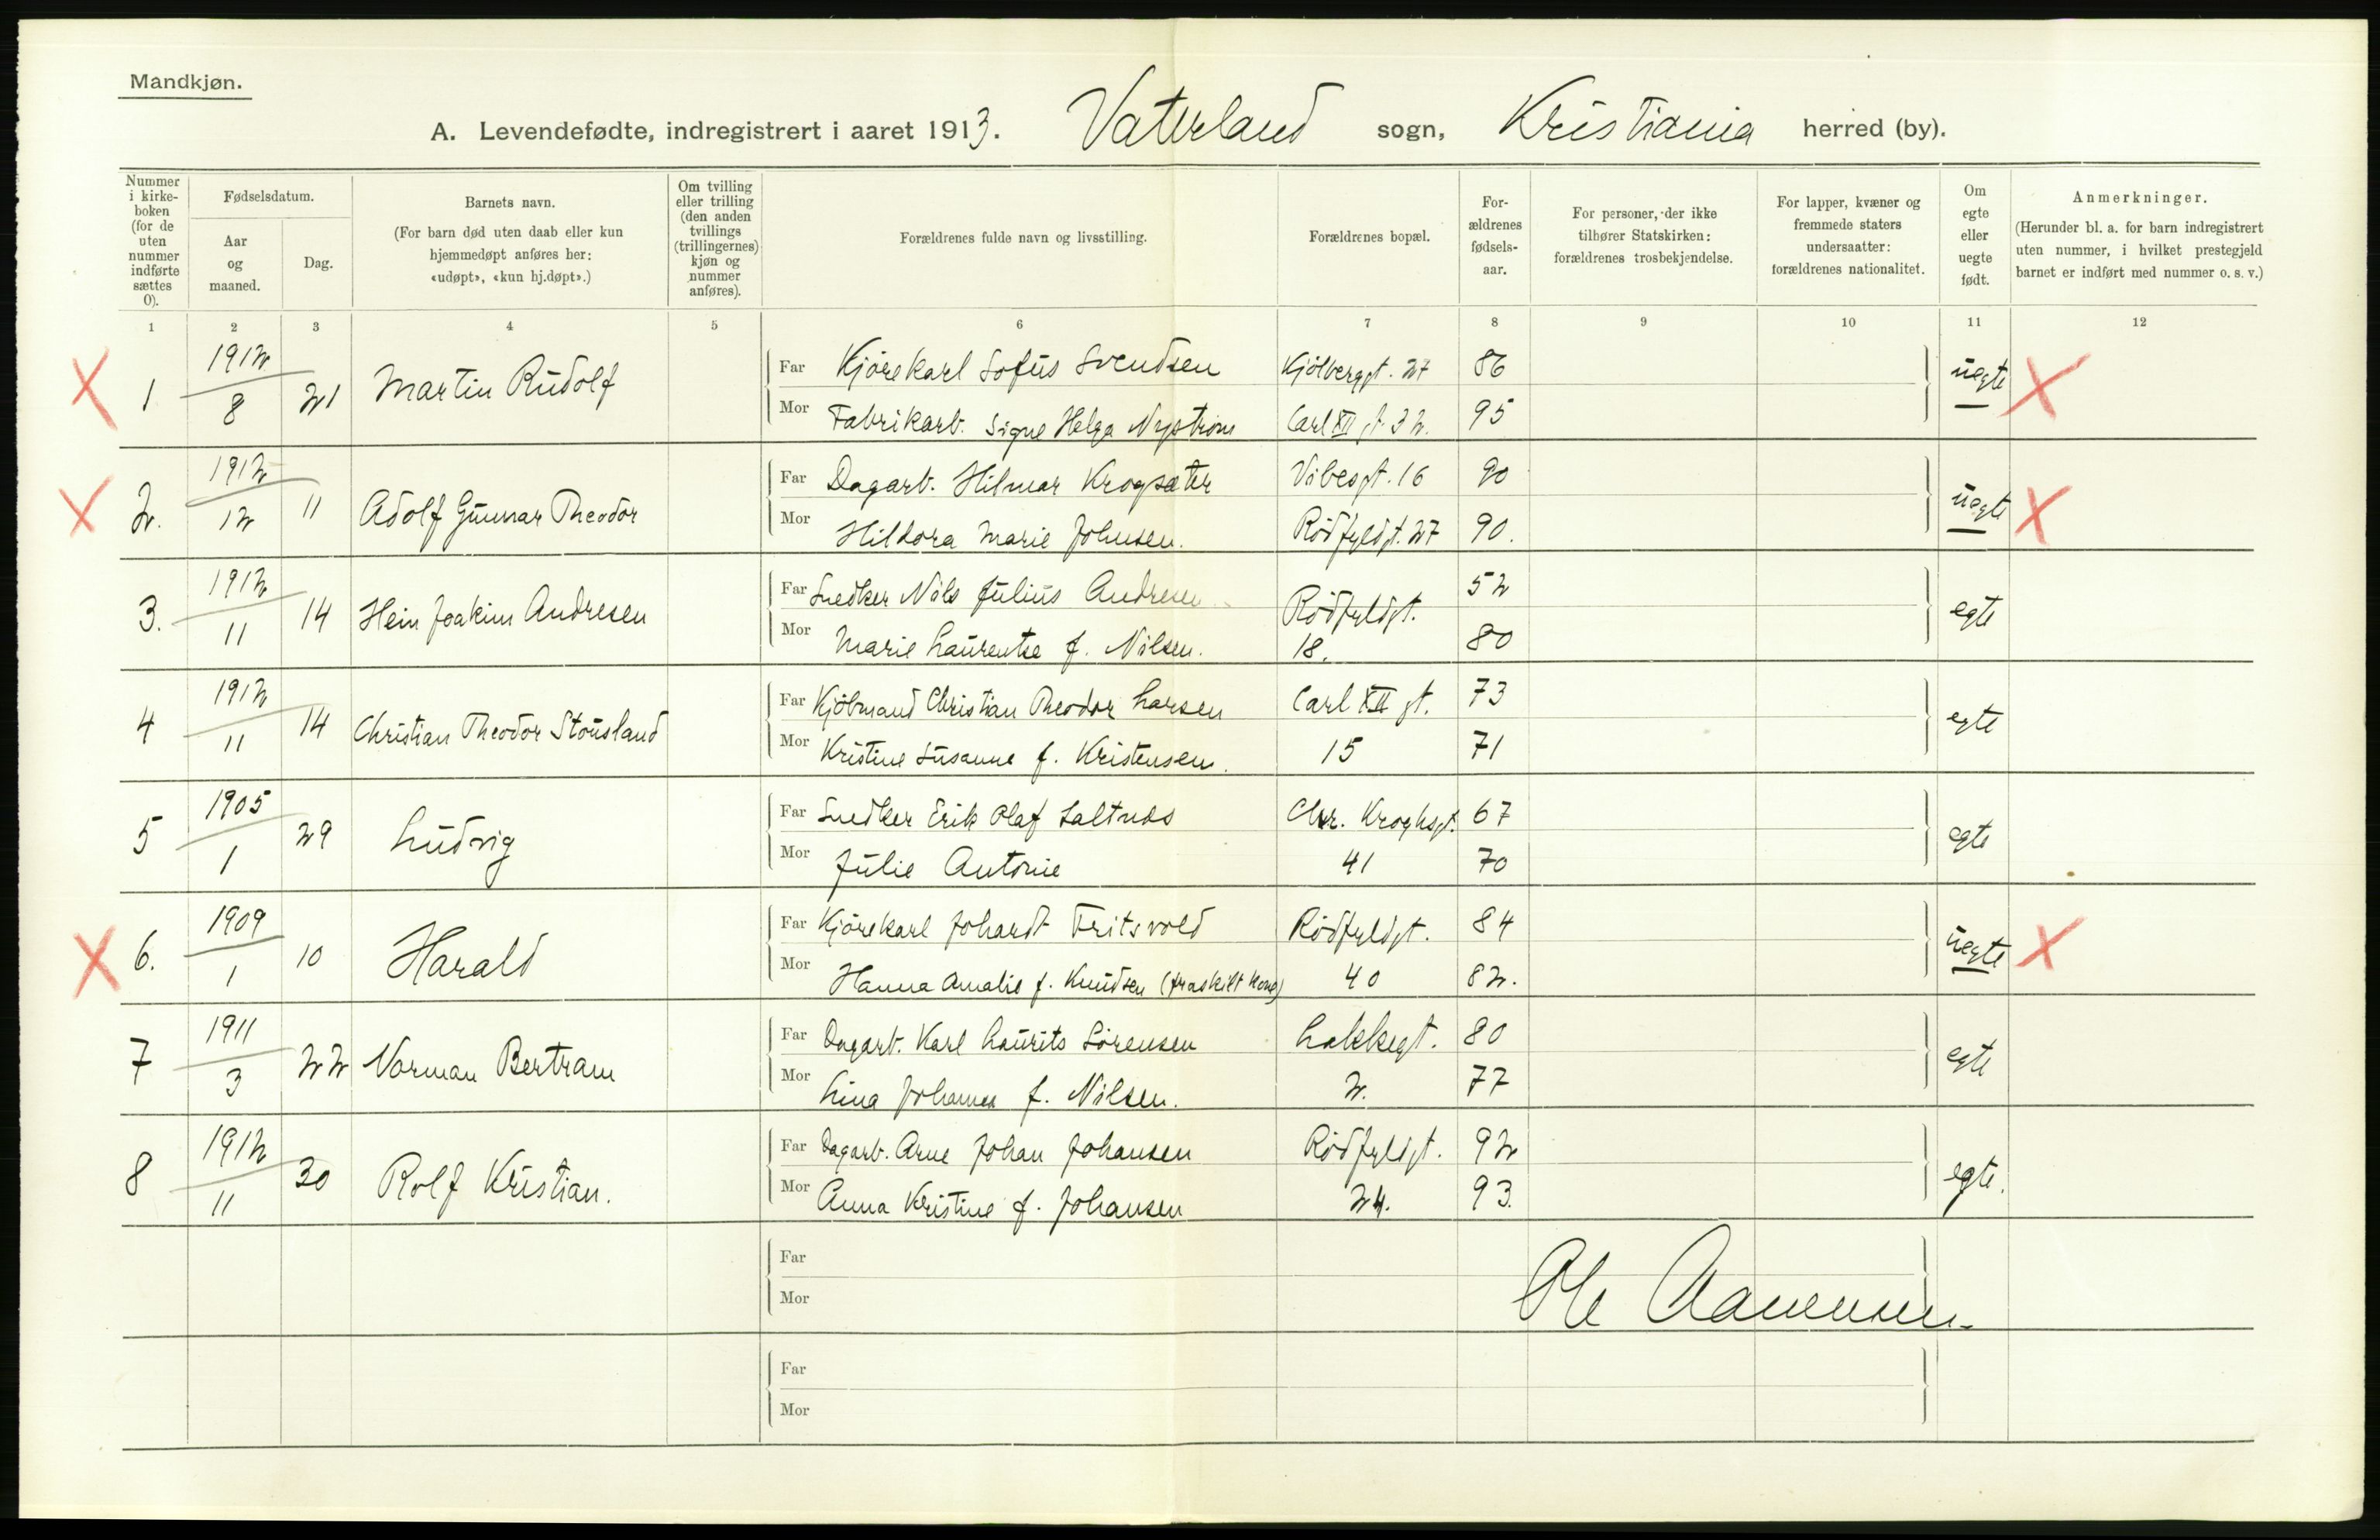 Mandkjøn.
A. Levendefødte, indregistrert i aaret 1913. Vaterland sogn, Kristiania herred (by).
Nummer i kirke-boken (for de uten nummer indførte sættes 0).
Fødselsdatum.
Aar og maaned.
Dag.
Barnets navn.
(For barn død uten daab eller kun hjemmedøpt anføres her: «udøpt», «kun hj.døpt».)
Om tvilling eller trilling (den anden tvillings (trillingernes) kjøn og nummer anføres).
Forældrenes fulde navn og livsstilling.
Forældrenes bopæl.
For-ældrenes fødsels-aar.
For personer, der ikke tilhører Statskirken: forældrenes trosbekjendelse.
For lapper, kvæner og fremmede staters undersaatter: forældrenes nationalitet.
Om egte eller uegte født.
Anmerkninger.
(Herunder bl. a. for barn indregistrert uten nummer, i hvilket prestegjeld barnet er indført med nummer o. s. v.)
1 2 3 4 5 6 7 8 9 10 11 12
X 1 1912 8 21 Martin Rudolf uegte X
Far Kjørekarl Sofus Svendsen Kjølberggt. 27 86
Mor Fabrikarb. Signe Helga Nystrøm Carl XII gt 32. 95
X 2. 1912 12 11 Adolf Gunnar Theodor uegte X
Far Dagarb. Hilmar Krogsæter Vibesgt. 16 90
Mor Hildora Marie Johnsen. Rødfyldgt. 27 90.
3. 1912 11 14 Hein Joakim Andresen egte
Far Snedker Nils Julius Andresen Rødfyldgt. 52
Mor Marie Laurentse f. Nilsen. 18. 80
4 1912 11 14 Christian Theodor Stousland egte
Far Kjøbmand Christian Theodor Larsen Carl XII gt. 73
Mor Kristine Susanne f. Kristensen. 15 71
5 1905 1 29 Ludvig egte
Far Snedker Erik Olaf Saltnes Chr. Kroghsgt. 67
Mor Julie Antonie 41 70
X 6. 1909 1 10 Harald uegte X
Far Kjørekarl Johardt Fritsvold Rødfyldgt. 84
Mor Hanna Amalie f. Knudsen (fraskilt kone) 40 82.
7 1911 3 22 Norman Bertram egte
Far Dagarb. Karl Laurits Sørensen Lakkegt. 80
Mor Lina Johanna f. Nilsen. 2. 77
8 1912 11 30 Rolf Kristian. egte.
Far Dagarb. Arne Johan Johansen Rødfyldgt. 92
Mor Anna Kristine f. Johansen 24. 93.
Far
Mor
Ole
Far
Mor